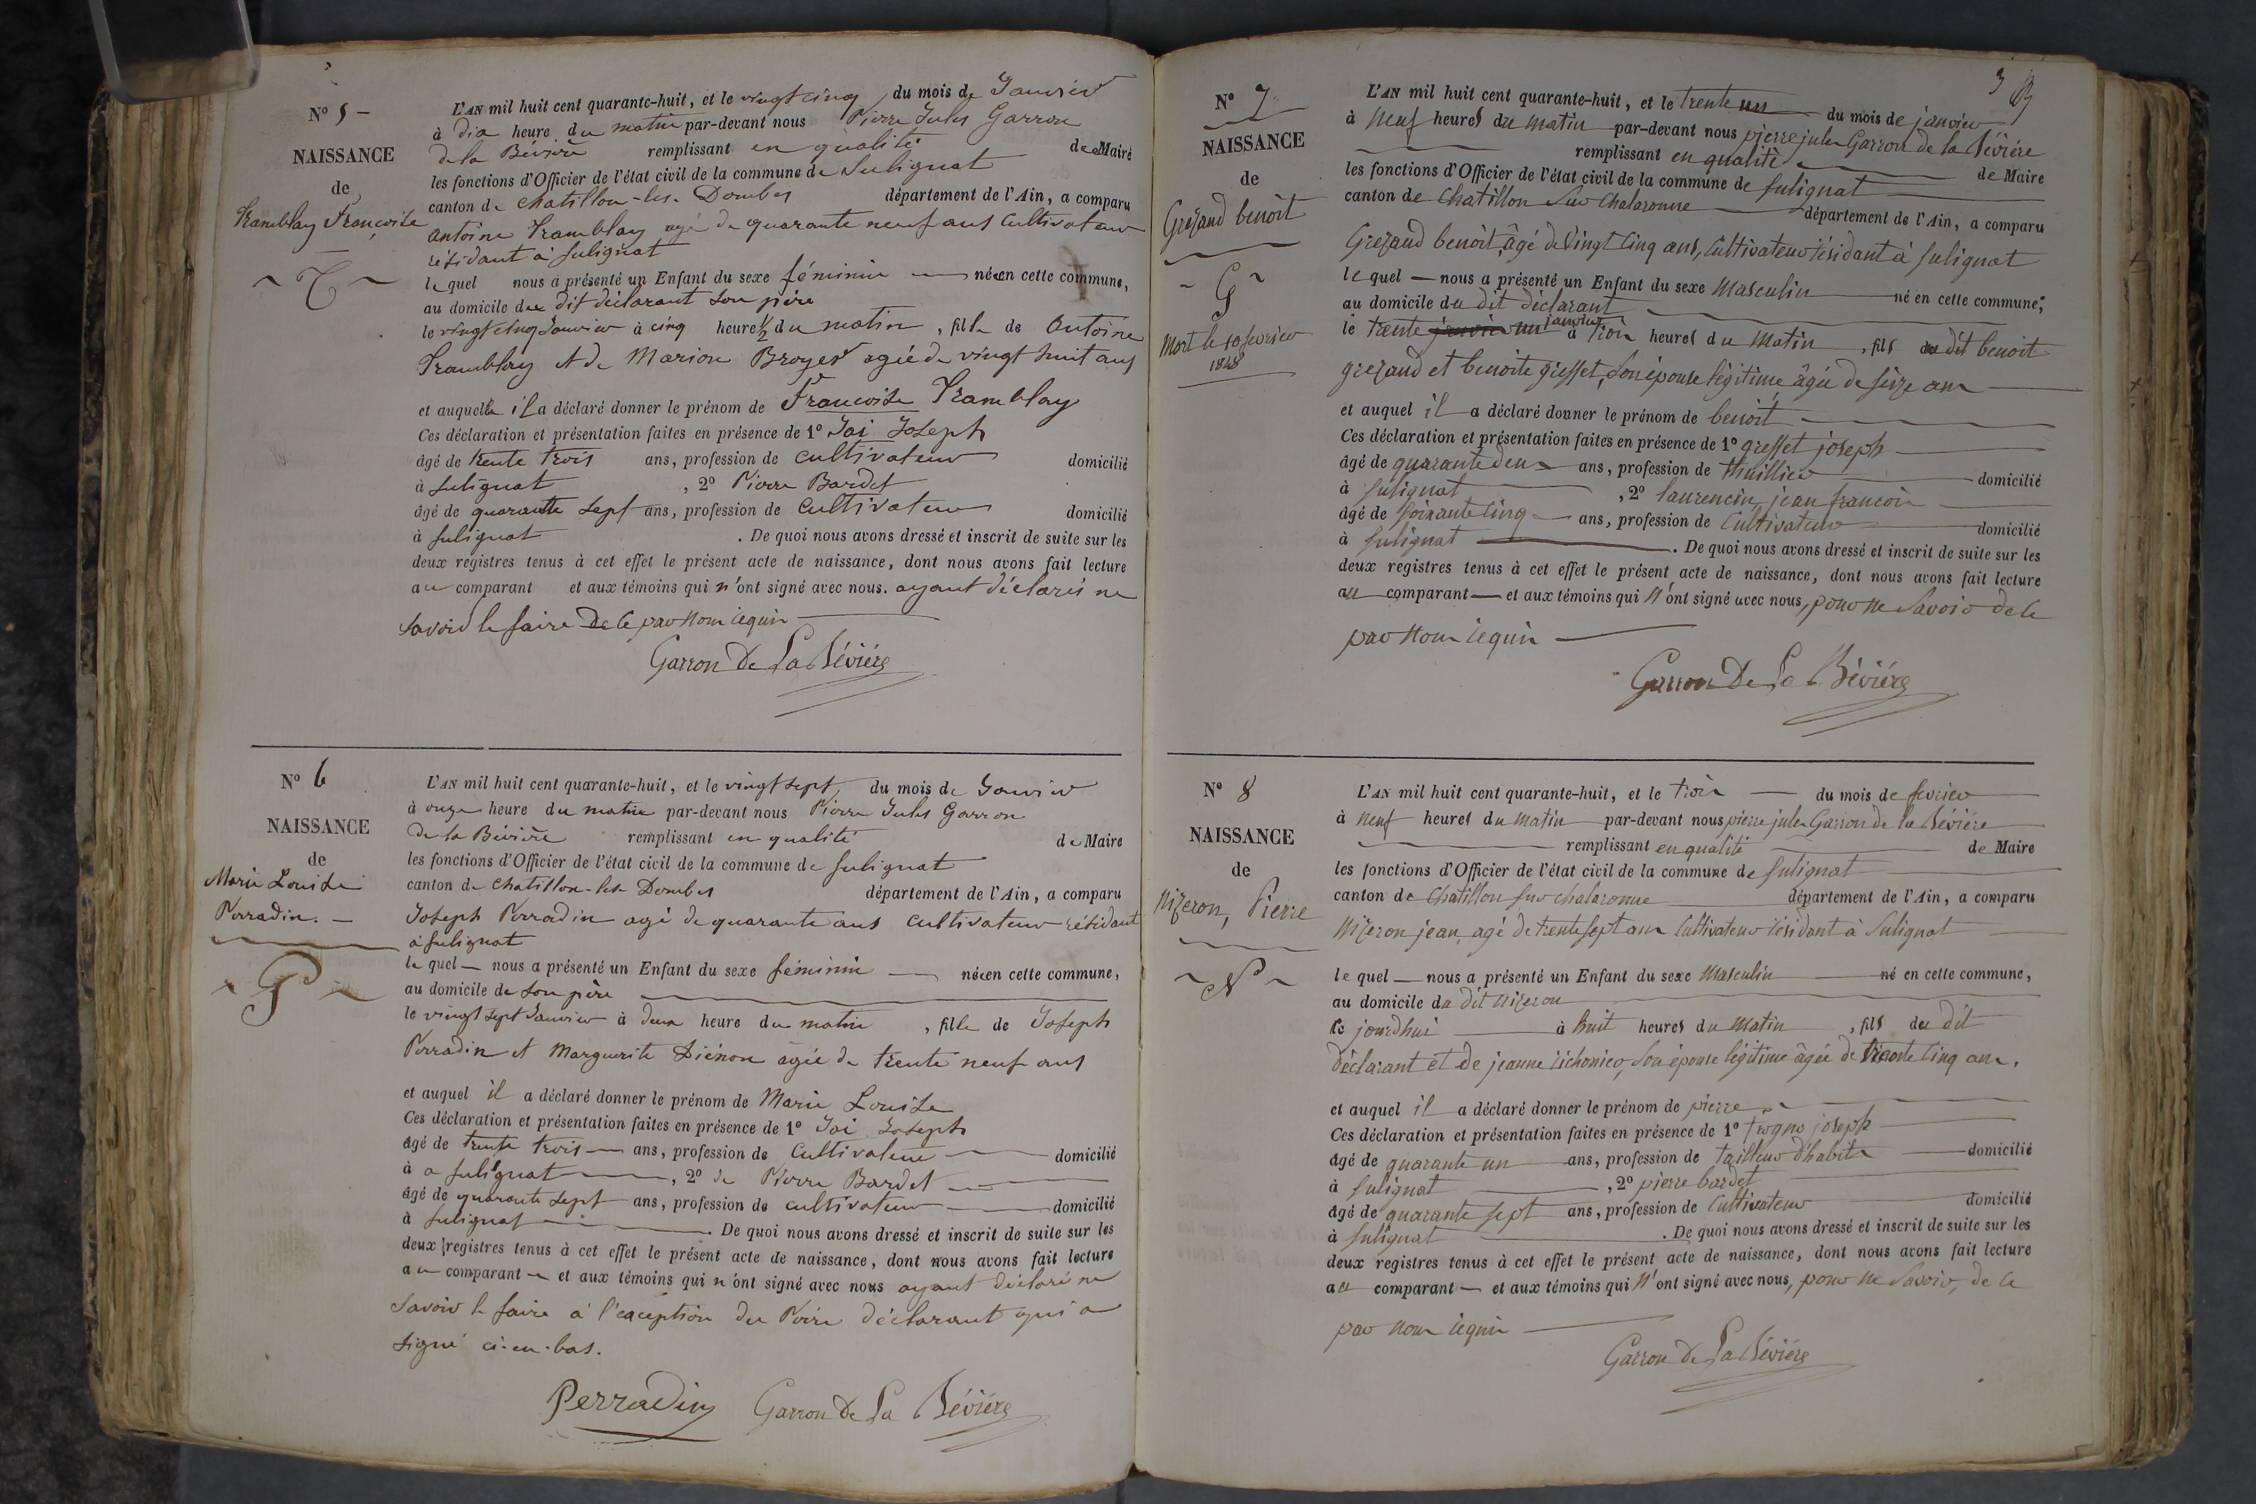 N° 5 —
NAISSANCE
de
Tramblay Françoise
T
L'AN mil huit cent quarante-huit, et le vingt cinq du mois de Janvier
à dix heure du matin par-devant nous Pierre Jules Garron
de la Bévière remplissant en qualité de Maire
les fonctions d'Officier de l'état civil de la commune de Sulignat
canton de Chatillon-les-Dombes département de l'Ain, a comparu
Antoine Tramblay agé de quarante neuf ans Cultivateur
résidant à Sulignat
le quel nous a présenté un Enfant du sexe féminin née en cette commune,
au domicile du dit déclarant son père
le vingt cinq Janvier à cinq heure ½ du matin, fille de Antoine
Tramblay et de Marion Broyer agée de vingt huit ans
et auquelle il a déclaré donner le prénom de Françoise Tramblay
Ces déclaration et présentation faites en présence de 1° Joi Joseph
âgé de trente trois ans, profession de cultivateur domicilié
à Sulignat, 2° Pierre Bardet
âgé de quarante sept ans, profession de cultivateur domicilié
à Sulignat. De quoi nous avons dressé et inscrit de suite sur les
deux registres tenus à cet effet le présent acte de naissance, dont nous avons fait lecture
au comparant et aux témoins qui n'ont signé avec nous. ayant déclarés ne
savoir le faire de ce par nous requis
Garron De La Bévière
N° 6
NAISSANCE
de
Marie Louise
Perradin. —
P
L'AN mil huit cent quarante-huit, et le vingt sept, du mois de Janvier
à onze heure du matin par-devant nous Pierre Jules Garron
De la Bévière remplissant en qualité de Maire
les fonctions d'Officier de l'état civil de la commune de Sulignat
canton de Chatillon-les-Dombes département de l'Ain, a comparu
Joseph Perradin agé de quarante ans cultivateur résidant
à Sulignat
le quel — nous a présenté un Enfant du sexe féminin — née en cette commune,
au domicile de son père
le vingt sept Janvier à deux heure du matin, fille de Joseph
Perradin et Marguerite Diénon âgée de trente neuf ans
et auquel il a déclaré donner le prénom de Marie Louise
Ces déclaration et présentation faites en présence de 1° Joi Joseph
âgé de trente trois — ans, profession de Cultivateur domicilié
à a Sulignat, 2° de Pierre Bardet
âgé de quarante sept ans, profession de cultivateur domicilié
à Sulignat. De quoi nous avons dressé et inscrit de suite sur les
deux registres tenus à cet effet le présent acte de naissance, dont nous avons fait lecture
au comparant — et aux témoins qui n'ont signé avec nous ayant déclaré ne
savoir le faire a l'exception du Père déclarant qui a
signé ci-en-bas.
Perradin Garron De La Bévière
3
N° 7
NAISSANCE
de
Grézaud benoît
G
Mort le 10 fevrier
1848
L'AN mil huit cent quarante-huit, et le trente un du mois de janvier
à neuf heures du matin par-devant nous pierre jules Garron de la Bévière
remplissant en qualité de Maire
les fonctions d'Officier de l'état civil de la commune de Sulignat
canton de Chatillon Sur Chalaronne département de l'Ain, a comparu
Grézaud benoît, âgé de vingt cinq ans, Cultivateur résidant à Sulignat
le quel — nous a présenté un Enfant du sexe Masculin né en cette commune,
au domicile du dit déclarant
le trente janvier un janvier à trois heures du matin, fils du dit benoit
grezaud et benoite gresset, son épouse légitime, âgée de seize ans
et auquel il a déclaré donner le prénom de benoît
Ces déclaration et présentation faites en présence de 1° gresset joseph
âgé de quarante deux ans, profession de thuillier domicilié
à Sulignat, 2° laurencin jean françois
âgé de soixante cinq ans, profession de Cultivateur domicilié
à Sulignat. De quoi nous avons dressé et inscrit de suite sur les
deux registres tenus à cet effet le présent acte de naissance, dont nous avons fait lecture
au comparant — et aux témoins qui n'ont signé avec nous, pour ne Savoir de ce
par nous requis
Garron De La Bévière
N° 8
NAISSANCE
de
Nizeron, Pierre
N
L'AN mil huit cent quarante-huit, et le trois du mois de fevrier
à neuf heures du matin par-devant nous pierre jules Garron de la Bévière
remplissant en qualité de Maire
les fonctions d'Officier de l'état civil de la commune de Sulignat
canton de Chatillon sur chalaronne département de l'Ain, a comparu
Nizeron jean, agé de trente sept ans Cultivateur résidant à Sulignat
le quel — nous a présenté un Enfant du sexe Masculin né en cette commune,
au domicile du dit nizeron
le jourdhui à huit heures du matin, fils du dit
déclarant et de jeanne son épouse légitime âgée de trente cinq ans.
et auquel il a déclaré donner le prénom de pierre
Ces déclaration et présentation faites en présence de 1° joseph
âgé de quarante un ans, profession de tailleur d'habits domicilié
à Sulignat, 2° pierre bardet
âgé de quarante sept ans, profession de Cultivateur domicilié
à Sulignat. De quoi nous avons dressé et inscrit de suite sur les
deux registres tenus à cet effet le présent acte de naissance, dont nous avons fait lecture
au comparant — et aux témoins qui n'ont signé avec nous, pour ne Savoir, de ce
par nous requis
Garron De La Bévière